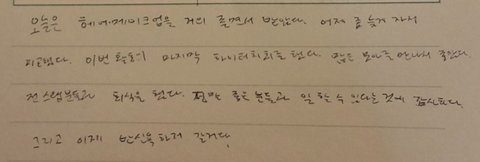 오늘은 헤어메이크업을 거의 졸면서 받았다. 어제 좀 늦게 자서
피곤했다. 이번 활동의 마지막 파이터치회를 했다. 많은 모아를 만나서 좋았다.
전 스탭분들과 회식을 했다. 정말 좋은 분들과 일 할 수 있다는 것에 감사하다.
그리고 이제 반신욕하러 갈거다.